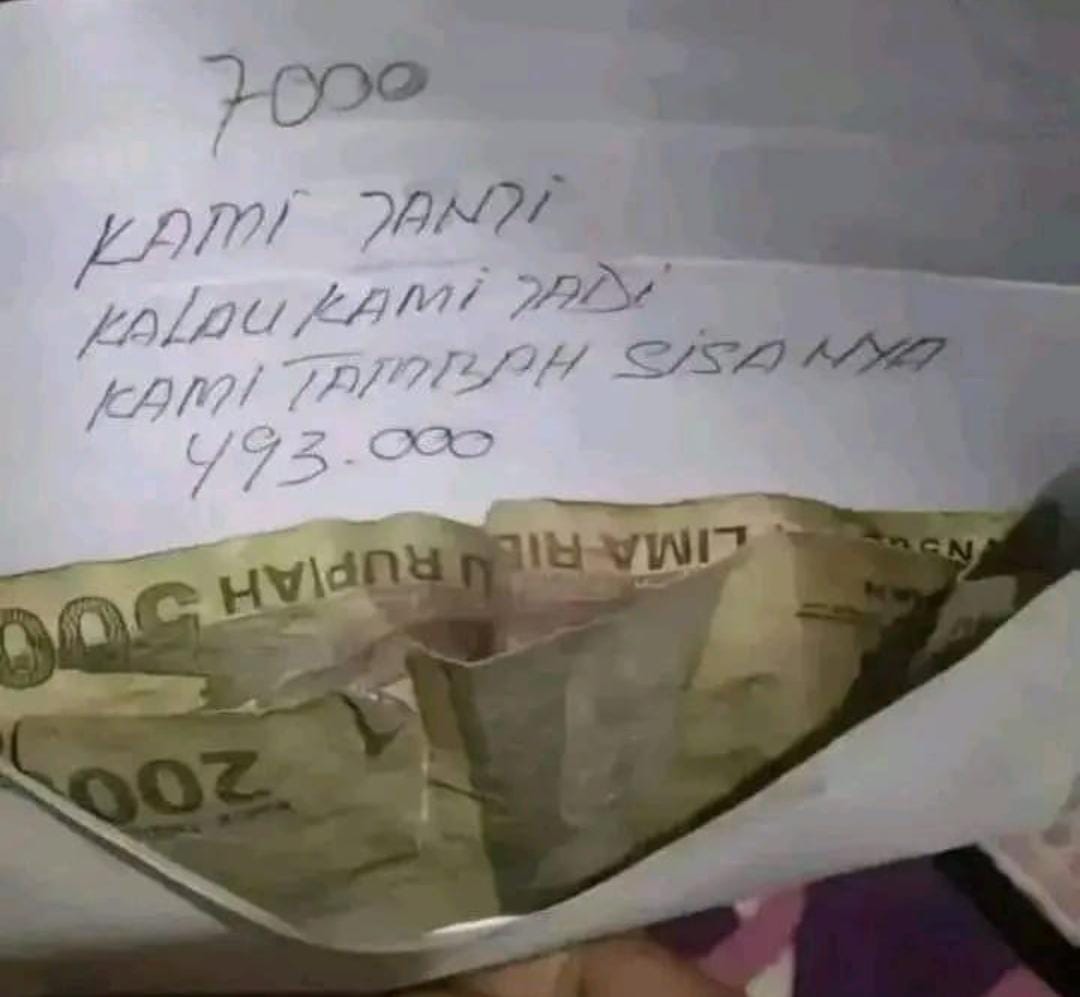 7000
KAMI JANJI
KALAU KAMI JADI
KAMI TAMBAH SISANYA
493.000
LIMA RIBU RUPIAH 5000
2000